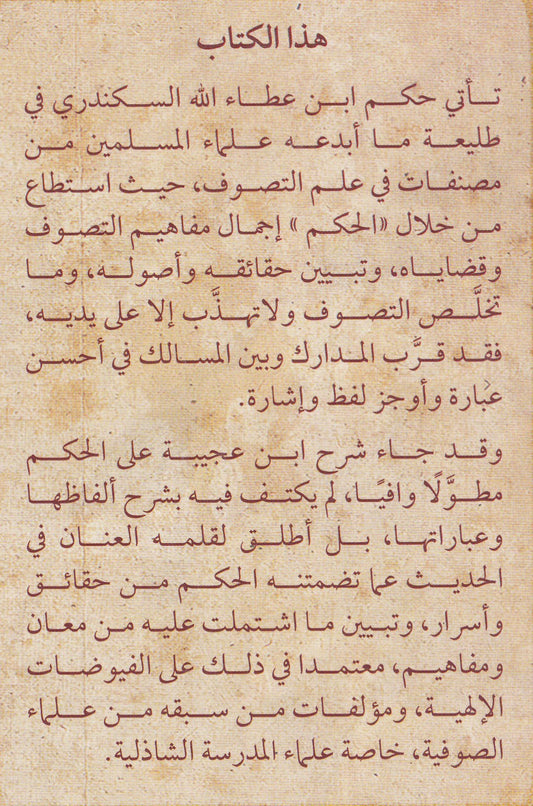 هذا الكتاب
تأتي حكم ابن عطاء الله السكندري في
طليعة ما أبدعه علماء المسلمين من
مصنفات في علم التصوف، حيث استطاع
من خلال «الحكم» إجمال مفاهيم التصوف
وقضاياه، وتبيين حقائقه وأصوله، وما
تخلَّص التصوف ولا تهذَّب إلا على يديه،
فقد قرَّب المدارك وبين المسالك في أحسن
عبارة وأوجز لفظ وإشارة.
وقد جاء شرح ابن عجيبة على الحكم
مطوَّلًا وافيًا، لم يكتف فيه بشرح ألفاظها
وعباراتها، بل أطلق لقلمه العنان في
الحديث عما تضمنته الحكم من حقائق
وأسرار، وتبيين ما اشتملت عليه من معان
ومفاهيم، معتمدا في ذلك على الفيوضات
الإلهية، ومؤلفات من سبقه من علماء
الصوفية، خاصة علماء المدرسة الشاذلية.